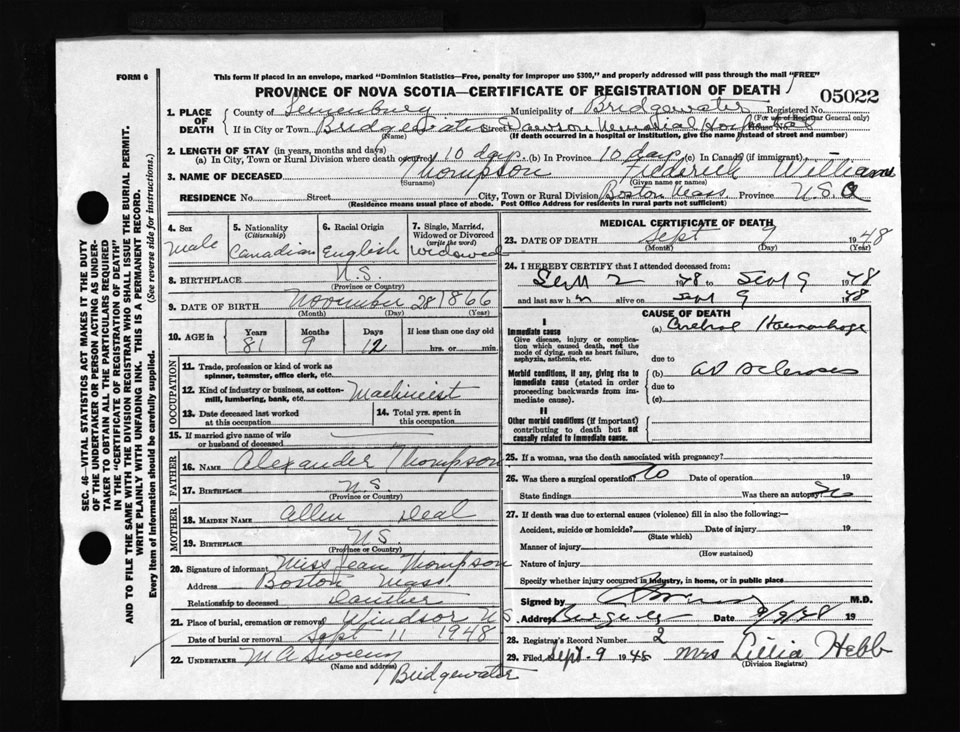 FORM 6
This form if placed in an envelope, marked "Dominion Statistics—Free, penalty for improper use $300," and properly addressed will pass through the mail "FREE"
PROVINCE OF NOVA SCOTIA—CERTIFICATE OF REGISTRATION OF DEATH
05022
1. PLACE OF DEATH County of Lunenburg Municipality of Bridgewater Registered No.
(For use of Registrar General only)
If in City or Town Bridgewater Street Dawson Memorial Hospital House No.
(Name) (If death occurred in a hospital or institution, give the name instead of street and number)
2. LENGTH OF STAY (in years, months and days)
(a) In City, Town or Rural Division where death occurred 10 days. (b) In Province 10 days (c) In Canada (if immigrant)
3. NAME OF DECEASED Thompson Frederick William
(Surname) (Given name or names)
RESIDENCE No. Street City, Town or Rural Division Boston Mass Province U.S.A
(Residence means usual place of abode. Post Office Address for residents in rural parts not sufficient)
4. Sex Male
5. Nationality (Citizenship) Canadian
6. Racial Origin English
7. Single, Married, Widowed or Divorced (write the word) Widowed
8. BIRTHPLACE N.S.
(Province or Country)
9. DATE OF BIRTH November 28 1866
(Month) (Day) (Year)
10. AGE in Years Months Days If less than one day old
81 9 12 hrs. or min.
OCCUPATION
11. Trade, profession or kind of work as spinner, teamster, office clerk, etc.
12. Kind of industry or business, as cotton-mill, lumbering, bank, etc. Machinist
13. Date deceased last worked at this occupation
14. Total yrs. spent in this occupation
15. If married give name of wife or husband of deceased
FATHER
16. NAME Alexander Thompson
17. BIRTHPLACE N.S.
(Province or Country)
MOTHER
18. MAIDEN NAME Allen Deal
19. BIRTHPLACE N.S.
(Province or Country)
20. Signature of informant Miss Jean Thompson
Address Boston Mass
Relationship to deceased
21. Place of burial, cremation or removal Windsor N.S
Date of burial or removal Sept 11 1948
22. UNDERTAKER
(Name and address)
Bridgewater
MEDICAL CERTIFICATE OF DEATH
23. DATE OF DEATH Sept 9 1948
(Month) (Day) (Year)
24. I HEREBY CERTIFY that I attended deceased from:
Sept 2 1948 to Sept 9 1948
and last saw h alive on Sept 9 1948
CAUSE OF DEATH
I
Immediate cause
Give disease, injury or complication which caused death, not the mode of dying, such as heart failure, asphyxia, asthenia, etc.
(a) Cerebral Haemorrhage
due to
Morbid conditions, if any, giving rise to immediate cause (stated in order proceeding backwards from immediate cause).
(b)
due to
(c)
II
Other morbid conditions (if important) contributing to death but not causally related to immediate cause.
25. If a woman, was the death associated with pregnancy?
26. Was there a surgical operation? No Date of operation 19
State findings Was there an autopsy? No
27. If death was due to external causes (violence) fill in also the following:—
Accident, suicide or homicide? Date of injury 19
(State which)
Manner of injury
(How sustained)
Nature of injury
Specify whether injury occurred in industry, in home, or in public place
Signed by M.D.
Address Date 9/9/48 19
28. Registrar's Record Number 2
29. Filed Sept. 9 1948 Mrs Lillia Hebb
(Division Registrar)
SEC. 46—VITAL STATISTICS ACT MAKES IT THE DUTY
OF THE UNDERTAKER OR PERSON ACTING AS UNDER-
TAKER TO OBTAIN ALL THE PARTICULARS REQUIRED
IN THE "CERTIFICATE OF REGISTRATION OF DEATH"
AND TO FILE THE SAME WITH THE DIVISION REGISTRAR WHO SHALL ISSUE THE BURIAL PERMIT.
WRITE PLAINLY WITH UNFADING INK. THIS IS A PERMANENT RECORD.
Every item of information should be carefully supplied. (See reverse side for instructions.)